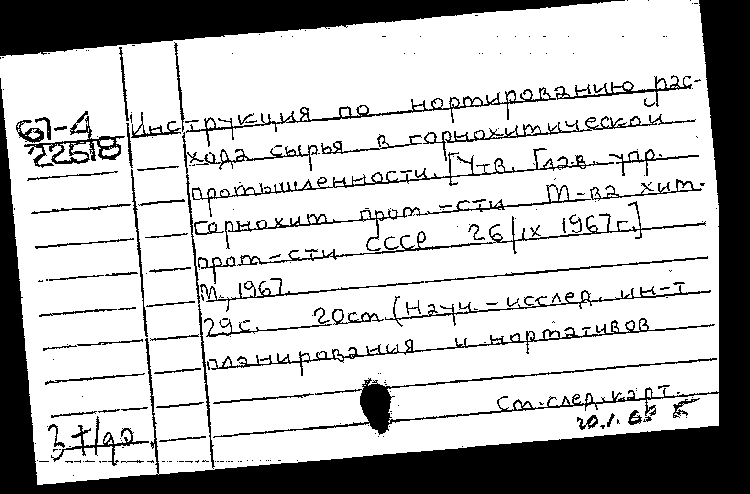 67-4 Инструкция по нормированию рас-
22518 хода сырья в горнохимической
промышленности. [Утв. Глав. упр.
горнохим. пром.-сти М-ва хим.
пром-сти СССР 26/IX 1967г.]
М., 1967.
29с. 20см (Науч.-исслед. ин-т
планирования и нормативов
См. след. карт.